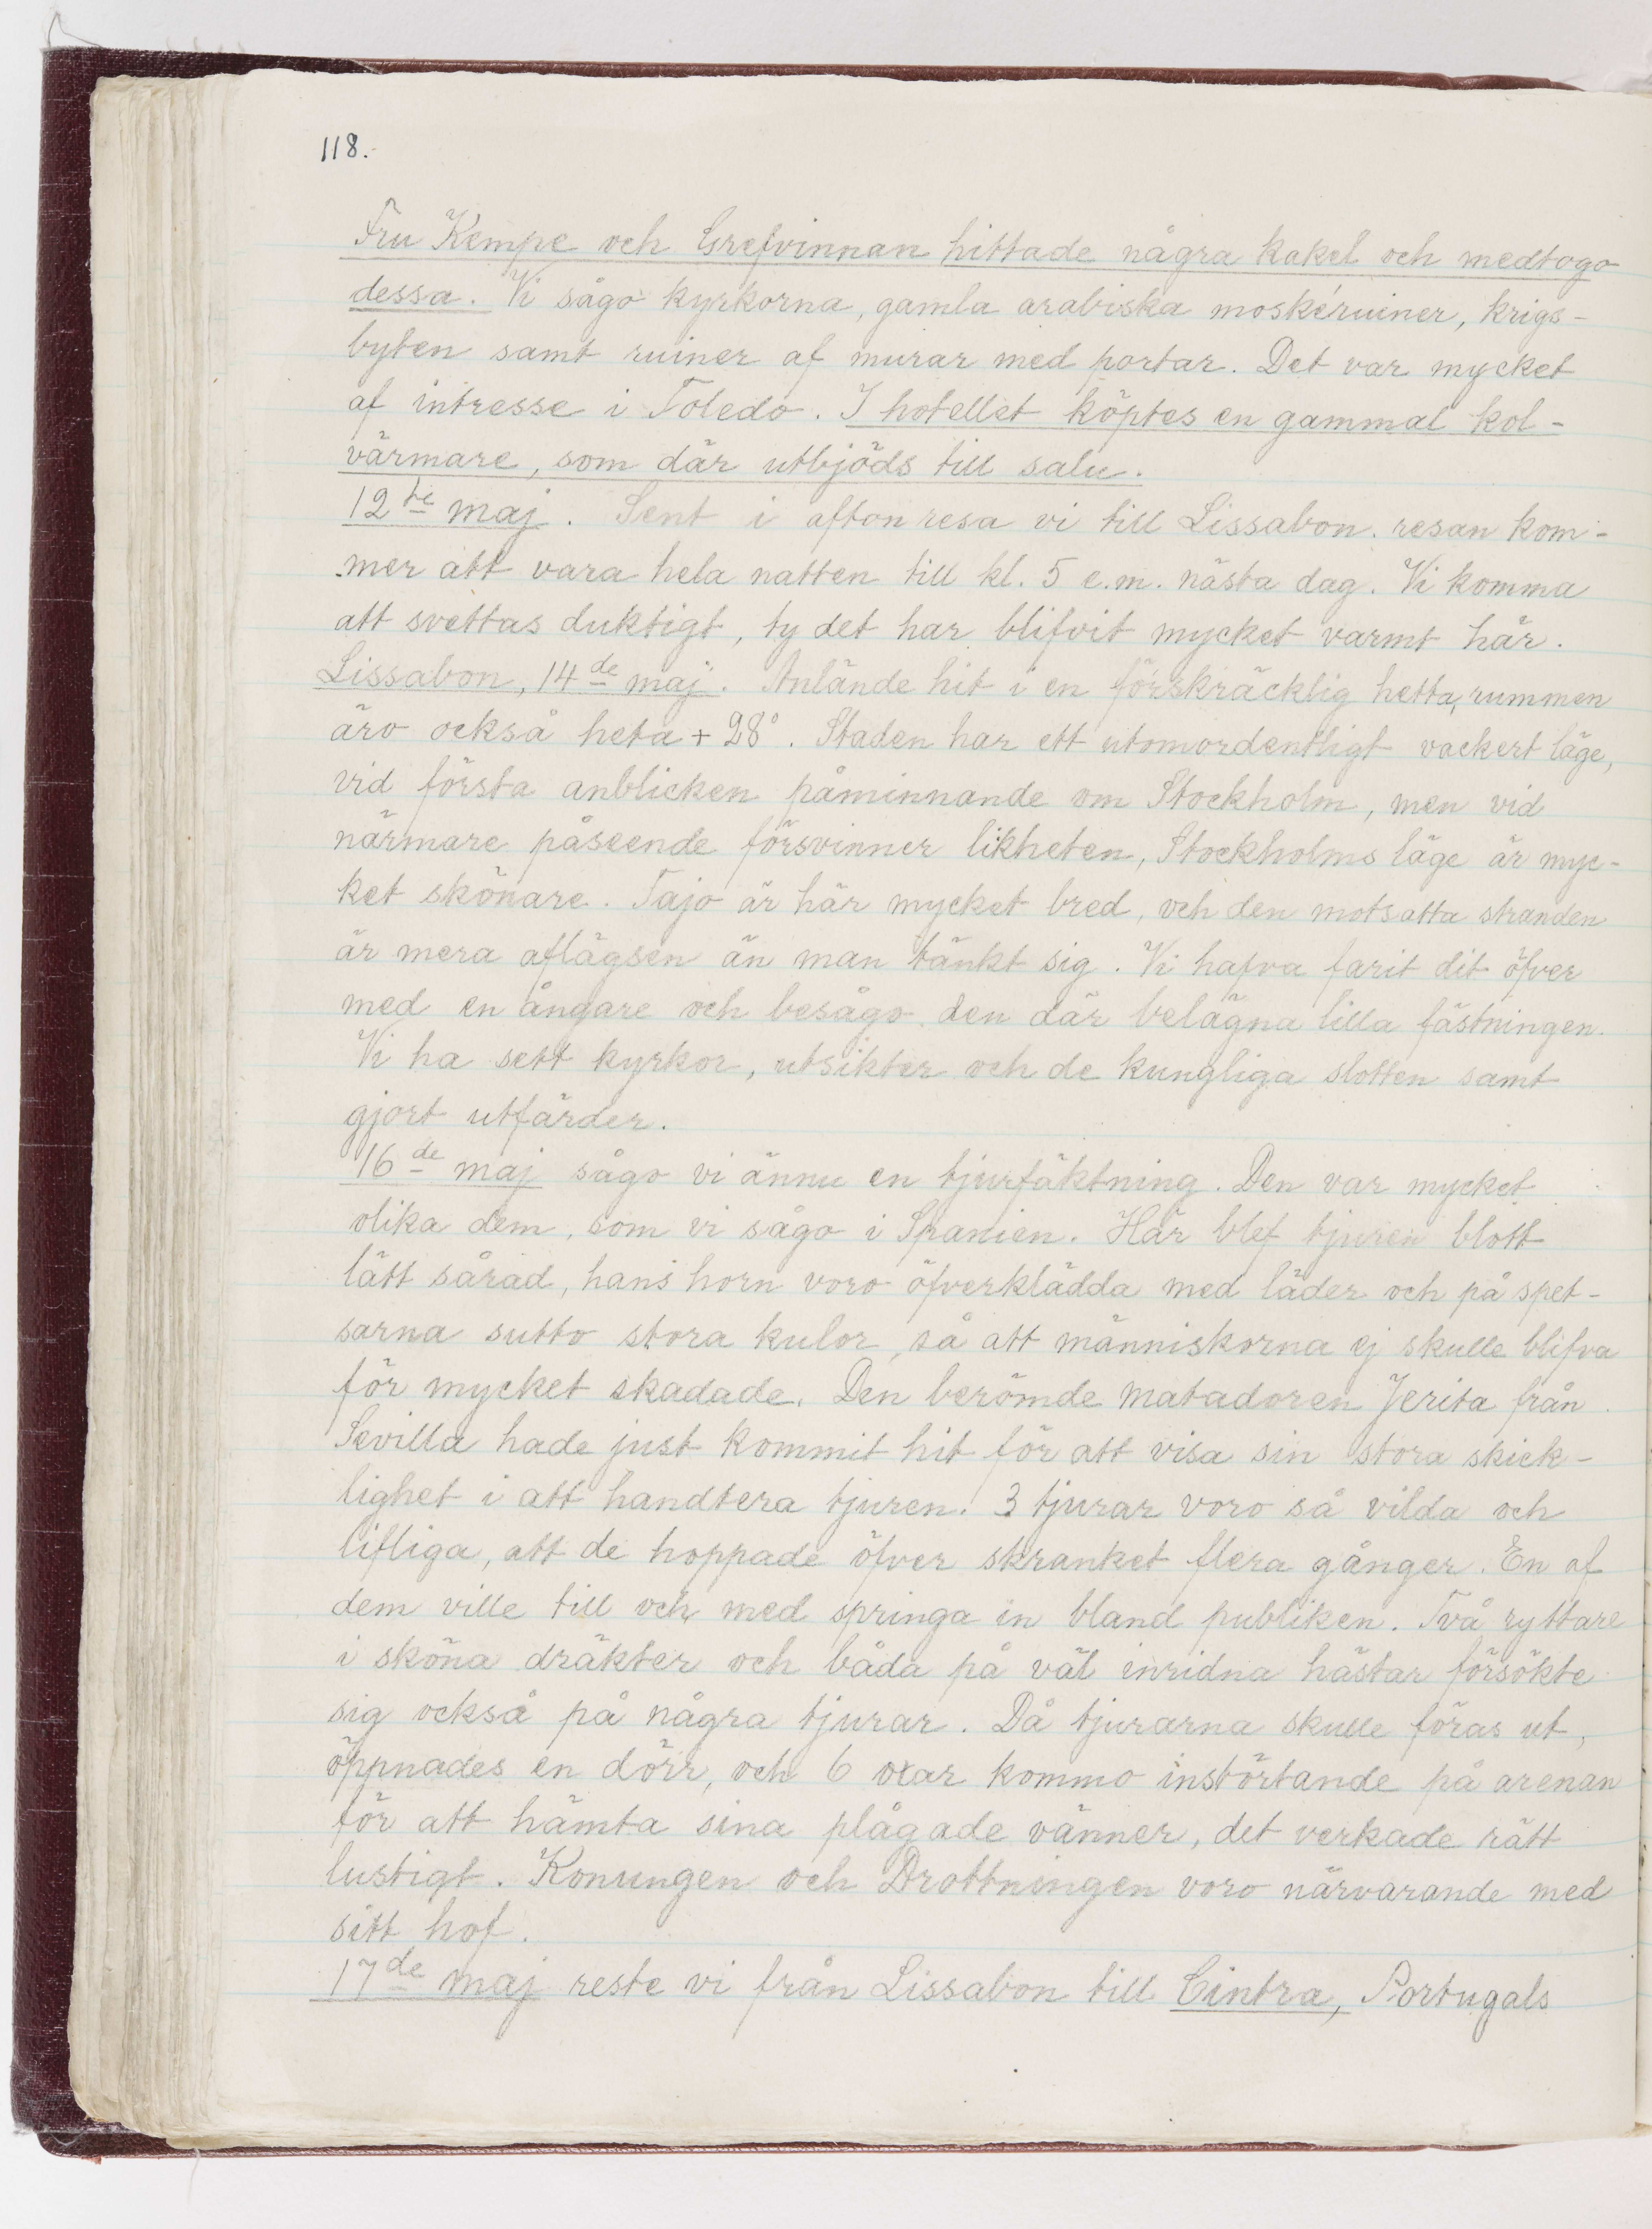 118.
Fru Kempe och Grefvinnan hittade några kakel och medtogo
dessa. Vi sågo kyrkorna, gamla arabiska moskéruiner, krigs-
byten samt ruiner af murar med portar. Det var mycket
af intresse i Toledo. I hotellet köptes en gammal kol-
värmare, som där utbjöds till salu.
12te maj. Sent i afton resa vi till Lissabon. resan kom-
mer att vara hela natten till kl. 5 e.m. nästa dag. Vi komma
att svettas duktigt, ty det har blifvit mycket varmt här.
Lissabon, 14de maj. Anlände hit i en förskräcklig hetta, rummen
äro också heta + 28°. Staden har ett utomordentligt vackert läge,
vid första anblicken påminnande om Stockholm, men vid
närmare påseende försvinner likheten, Stockholms läge är myc-
ket skönare. Tajo är här mycket bred, och den motsatta stranden
är mera aflägsen än man tänkt sig. Vi hafva farit dit öfver
med en ångare och besågo den där belägna lilla fästningen.
Vi ha sett kyrkor, utsikter och de kungliga slotten samt
gjort utfärder.
16de maj sågo vi ännu en tjurfäktning. Den var mycket
olika dem, som vi sågo i Spanien. Här blef tjuren blott
lätt sårad, hans horn voro öfverklädda med läder och på spet-
sarna sutto stora kulor, så att människorna ej skulle blifva
för mycket skadade. Den berömde matadoren Jerita från
Sevilla hade just kommit hit för att visa sin stora skick-
lighet i att handtera tjuren. 3 tjurar voro så vilda och
lifliga, att de hoppade öfver skranket flera gånger. En af
dem ville till och med springa in bland publiken. Två ryttare
i sköna dräkter och båda på väl inridna hästar försökte
sig också på några tjurar. Då tjurarna skulle föras ut,
öppnades en dörr, och 6 oxar kommo instörtande på arenan
för att hämta sina plågade vänner, det verkade rätt
lustigt. Konungen och Drottningen voro närvarande med
sitt hof.
17de maj reste vi från Lissabon till Cintra, Portugals